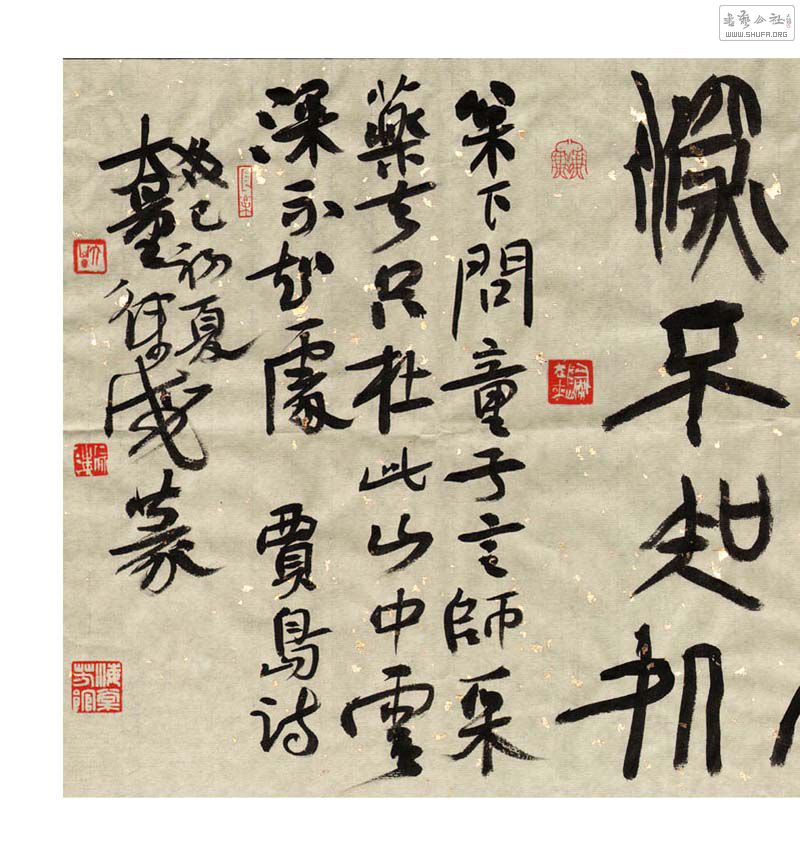 書藝公社
WWW.SHUFA.ORG
深不知處
枀下問童子言師采
藥去只在此山中雲
深不知處 賈島詩
癸巳初夏
大量
篆